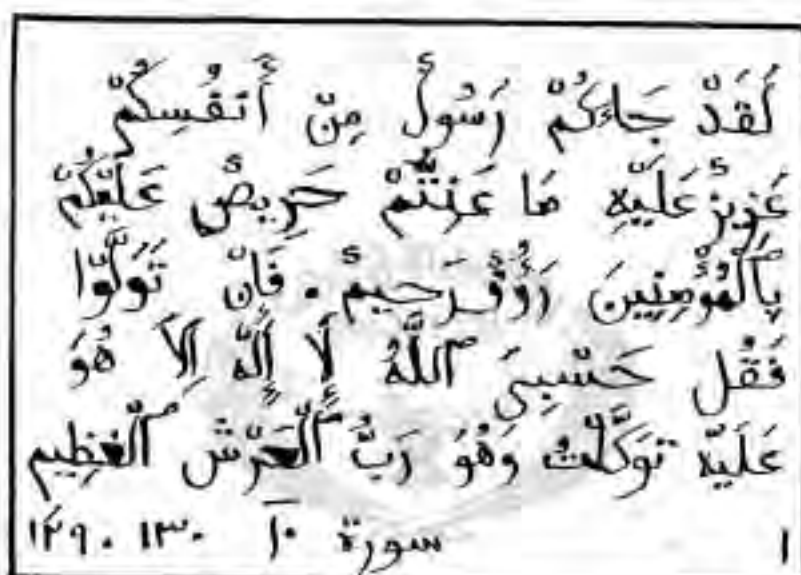 لَقَدْ جَاءَكُمْ رَسُولٌ مِنْ أَنفُسِكُمْ
عَزِيزٌ عَلَيْهِ مَا عَنِتُّمْ حَرِيصٌ عَلَيْكُمْ
بِٱلْمُؤْمِنِينَ رَؤُفٌ رَحِيمٌ . فَإِنْ تَوَلَّوْا
فَقُل حَسْبِيَ ٱللَّهُ لَا إِلَٰهَ إِلَّا هُوَ
عَلَيْهِ تَوَكَّلْتُ وَهُوَ رَبُّ ٱلْعَرْشِ ٱلْعَظِيمِ
١ سورة ١٣٠ . ١٢٩